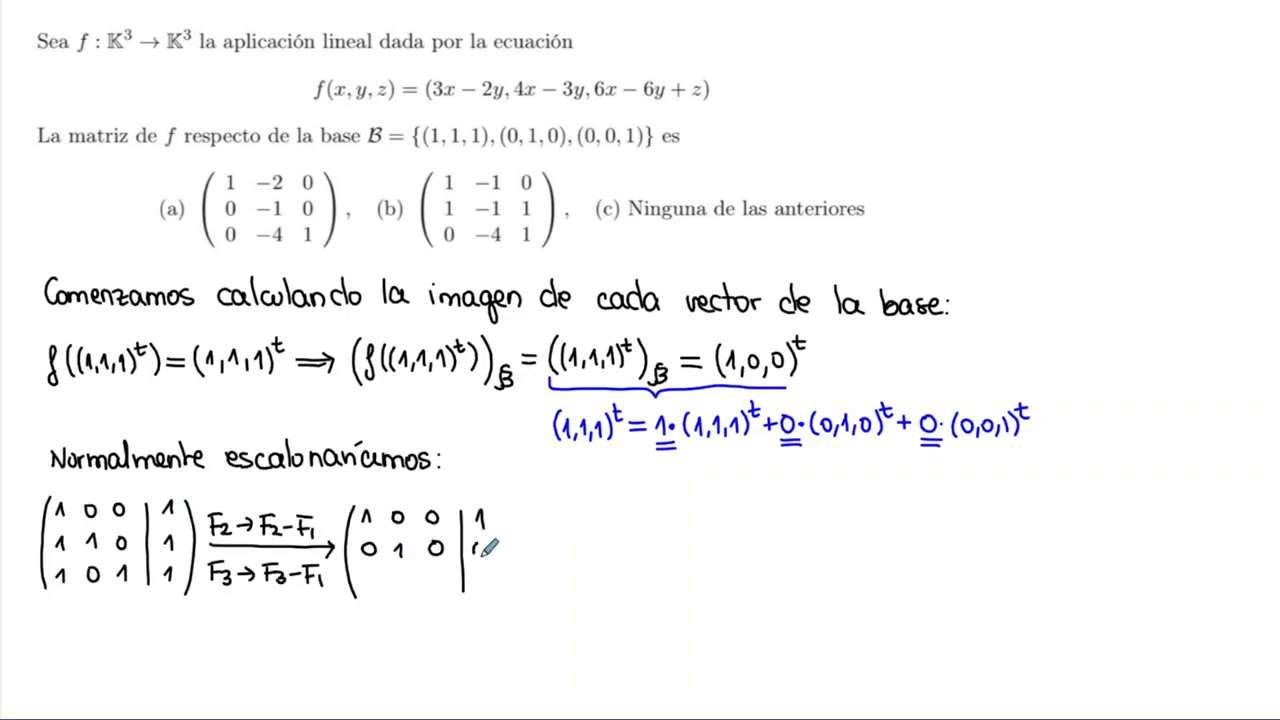 Sea f : 𝕂³ → 𝕂³ la aplicación lineal dada por la ecuación
f(x, y, z) = (3x − 2y, 4x − 3y, 6x − 6y + z)
La matriz de f respecto de la base ℬ = {(1, 1, 1), (0, 1, 0), (0, 0, 1)} es
(a) ( 1 −2 0 ; 0 −1 0 ; 0 −4 1 ) , (b) ( 1 −1 0 ; 1 −1 1 ; 0 −4 1 ) , (c) Ninguna de las anteriores
Comenzamos calculando la imagen de cada vector de la base:
f((1,1,1)ᵗ) = (1,1,1)ᵗ ⟹ (f((1,1,1)ᵗ))_ℬ = ((1,1,1)ᵗ)_ℬ = (1,0,0)ᵗ
(1,1,1)ᵗ = 1·(1,1,1)ᵗ + 0·(0,1,0)ᵗ + 0·(0,0,1)ᵗ
Normalmente escalonaríamos:
( 1 0 0 | 1 ; 1 1 0 | 1 ; 1 0 1 | 1 ) F₂→F₂−F₁ F₃→F₃−F₁ ( 1 0 0 | 1 ; 0 1 0 |